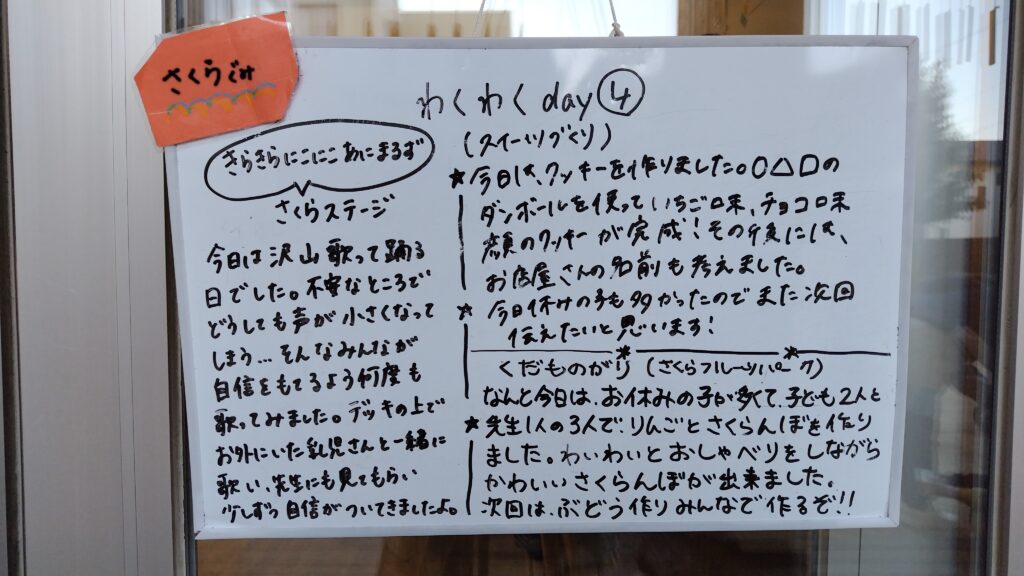 さくらぐみ
わくわくday④
きらきらにこにこあにまるず
さくらステージ
今日は沢山歌って踊る
日でした。不安なところで
どうしても声が小さくなって
しまう...そんなみんなが
自信をもてるよう何度も
歌ってみました。デッキの上で
お外にいた乳児さんと一緒に
歌い、先生にも見てもらい
少しずつ自信がついてきましたよ。
(スイーツづくり)
★今日は、クッキーを作りました。○△□の
ダンボールを使っていちご味、チョコ味
顔のクッキーが完成!その後には、
お店屋さんの名前も考えました。
★今日休けの子も多かったのでまた次回
伝えたいと思います!
くだものがり(さくらフルーツパーク)
なんと今日は、お休みの子が多くて、子ども2人と
★先生1人の3人で、りんごとさくらんぼを作り
ました。わいわいとおしゃべりをしながら
かわいいさくらんぼが出来ました。
次回は、ぶどう作りみんなで作るぞ!!